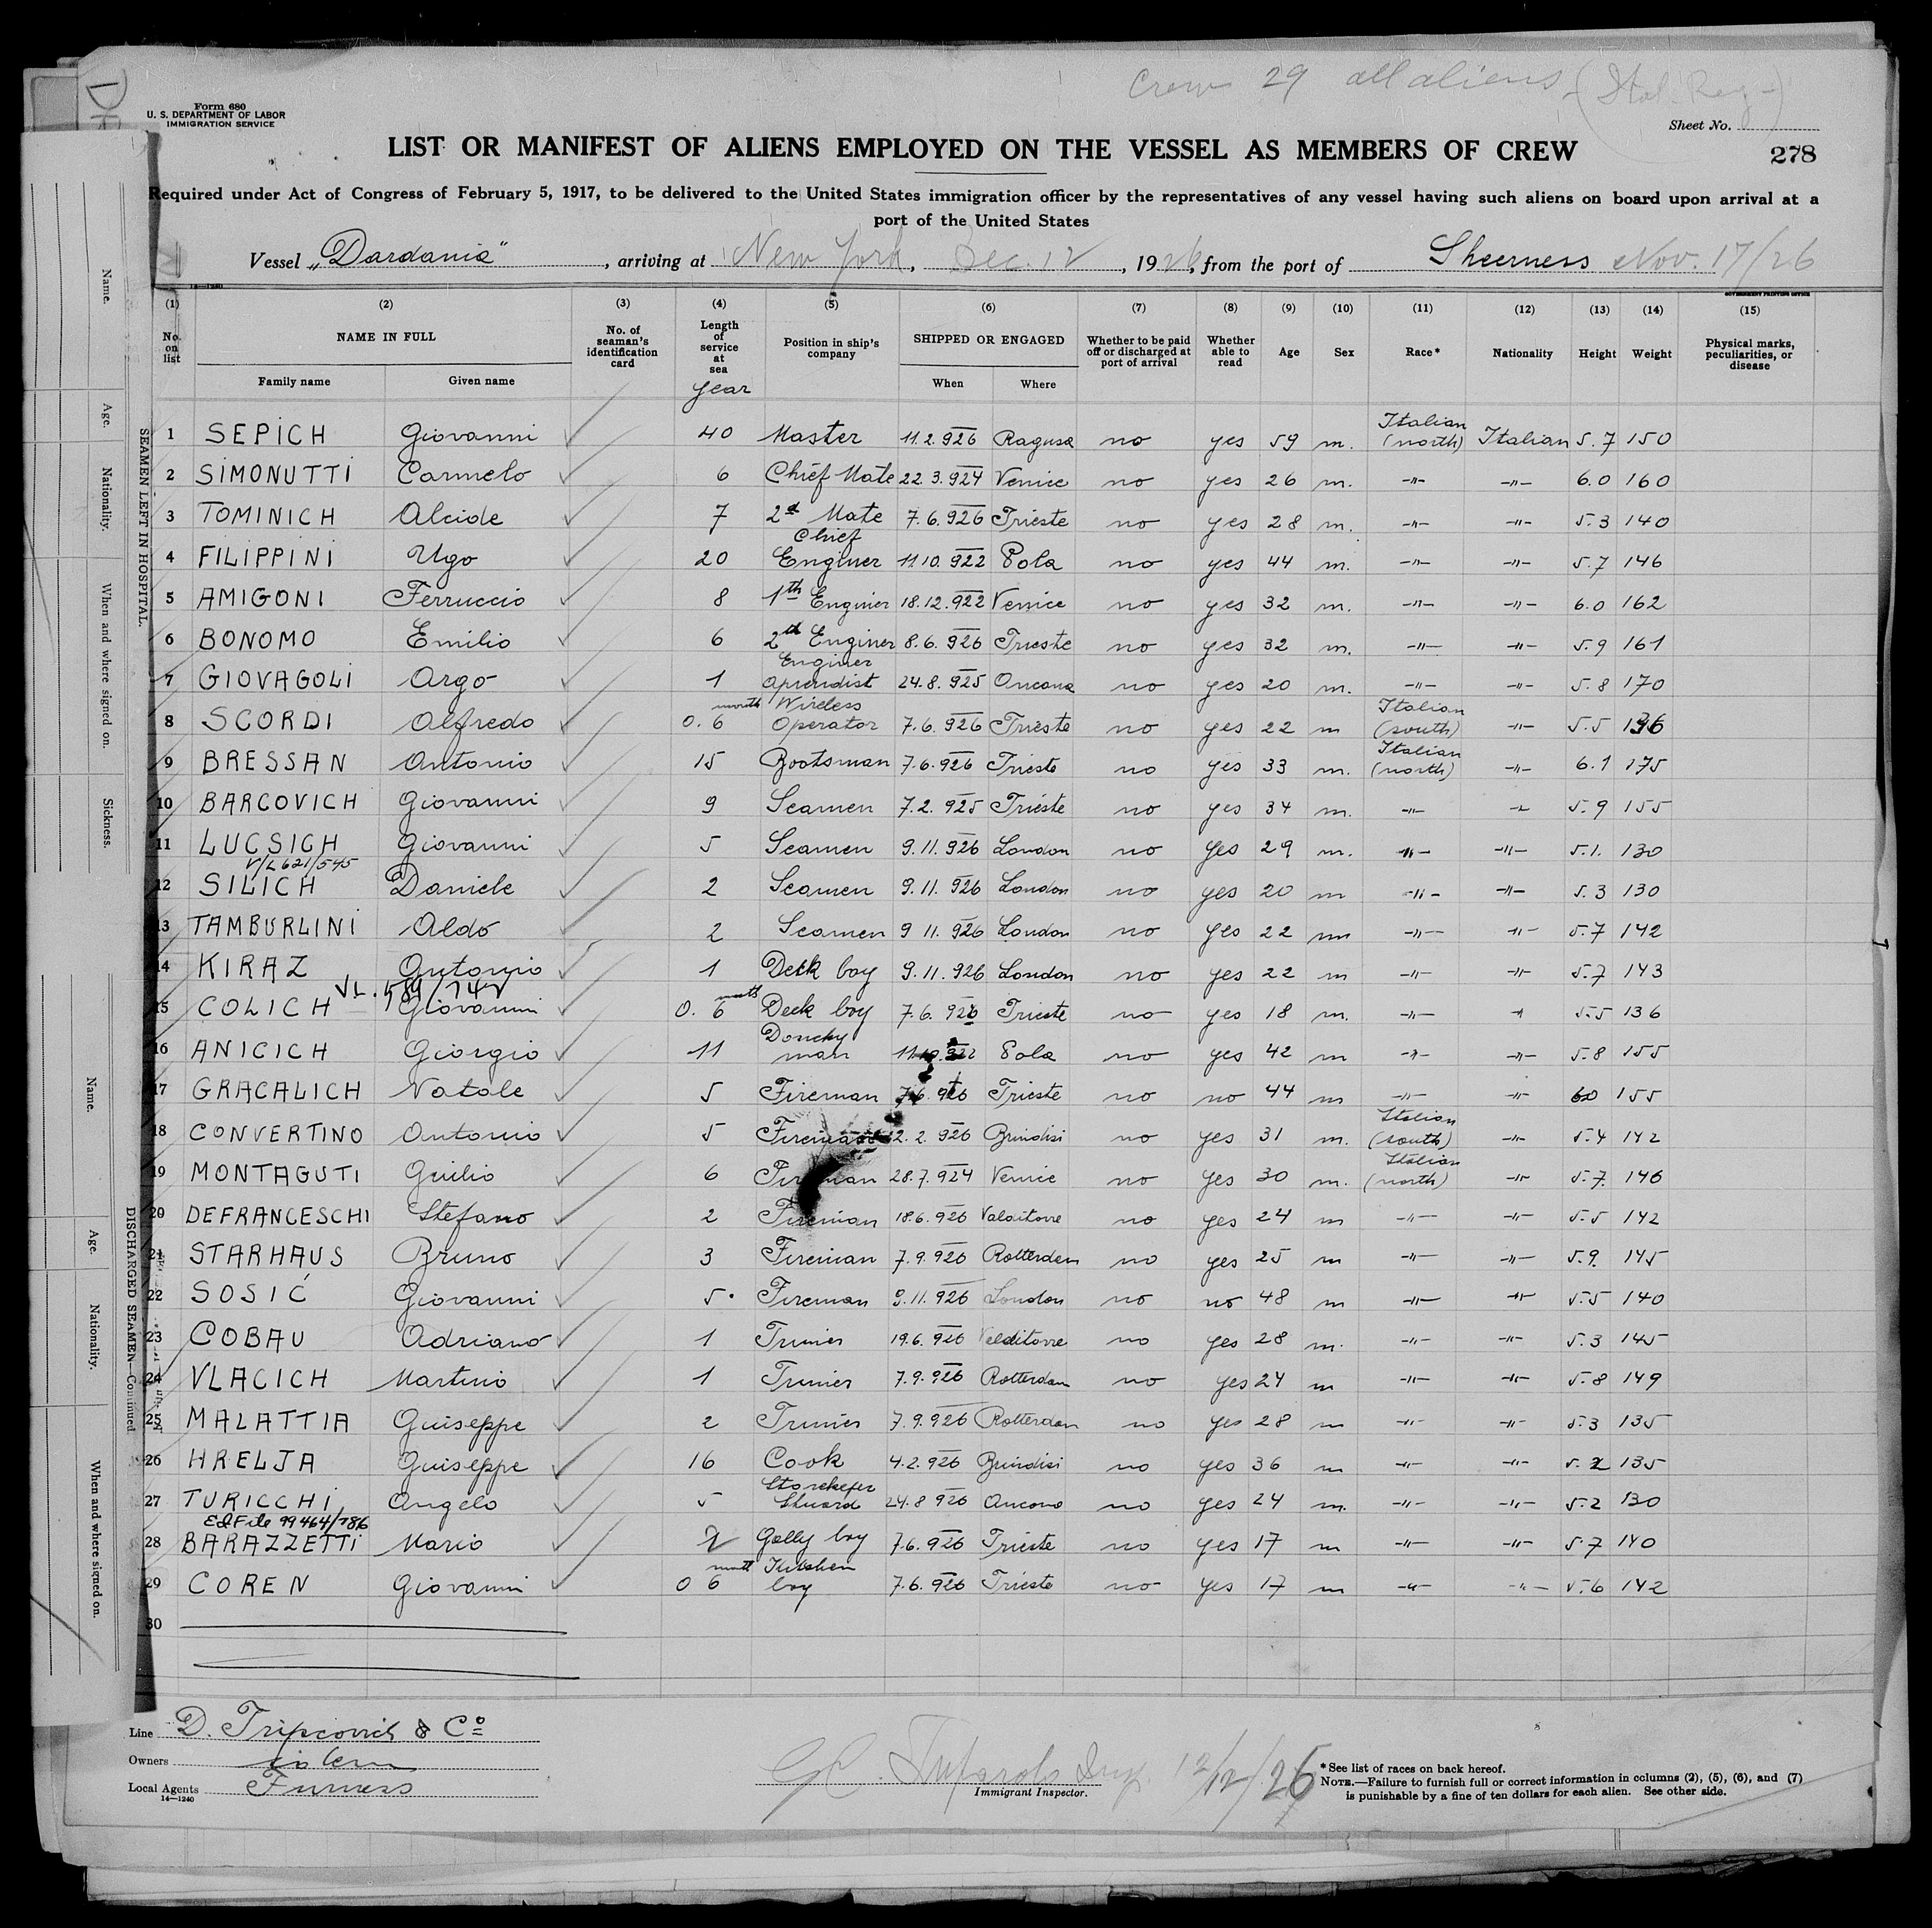 Crew 29 all aliens
Form 680
U. S. DEPARTMENT OF LABOR
IMMIGRATION SERVICE
Sheet No.
LIST OR MANIFEST OF ALIENS EMPLOYED ON THE VESSEL AS MEMBERS OF CREW
278
Required under Act of Congress of February 5, 1917, to be delivered to the United States immigration officer by the representatives of any vessel having such aliens on board upon arrival at a
port of the United States
Vessel „Dardania“, arriving at New York, Dec. 12, 1926, from the port of Sheerness Nov. 17/26
14—1240
GOVERNMENT PRINTING OFFICE
(1) (2) (3) (4) (5) (6) (7) (8) (9) (10) (11) (12) (13) (14) (15)
No. on list NAME IN FULL No. of seaman's identification card Length of service at sea Position in ship's company SHIPPED OR ENGAGED Whether to be paid off or discharged at port of arrival Whether able to read Age Sex Race* Nationality Height Weight Physical marks, peculiarities, or disease
Family name Given name year When Where
1 SEPICH Giovanni 40 Master 11.2.926 Ragusa no yes 59 m. Italian (north) Italian 5.7 150
2 SIMONUTTI Carmelo 6 Chief Mate 22.3.924 Venice no yes 26 m. -"- -"- 6.0 160
3 TOMINICH Alcide 7 2d Mate 7.6.926 Trieste no yes 28 m. -"- -"- 5.3 140
4 FILIPPINI Ugo 20 Chief Enginer 11.10.922 Pola no yes 44 m. -"- -"- 5.7 146
5 AMIGONI Ferruccio 8 1th Enginer 18.12.922 Venice no yes 32 m. -"- -"- 6.0 162
6 BONOMO Emilio 6 2th Enginer 8.6.926 Trieste no yes 32 m. -"- -"- 5.9 161
7 GIOVAGOLI Argo 1 Enginer aprendist 24.8.925 Ancona no yes 20 m. -"- -"- 5.8 170
8 SCORDI Alfredo 0.6 month Wireless Operator 7.6.926 Trieste no yes 22 m Italian (south) -"- 5.5 136
9 BRESSAN Antonio 15 Bootsman 7.6.926 Trieste no yes 33 m. Italian (north) -"- 6.1 175
10 BARCOVICH Giovanni 9 Seamen 7.2.925 Trieste no yes 34 m. -"- -"- 5.9 155
11 LUCSICH Giovanni 5 Seamen 9.11.926 London no yes 29 m. -"- -"- 5.1. 130
V/L 621/545
12 SILICH Daniele 2 Seamen 9.11.926 London no yes 20 m -"- -"- 5.3 130
13 TAMBURLINI Aldo 2 Seamen 9 11.926 London no yes 22 m -"- -"- 5.7 142
14 KIRAZ Antonio 1 Deck boy 9.11.926 London no yes 22 m -"- -"- 5.7 143
15 COLICH Giovanni 0.6 month Deck boy 7.6.926 Trieste no yes 18 m. -"- -"- 5.5 136
16 ANICICH Giorgio 11 Donckyman 11.10.922 Pola no yes 42 m -"- -"- 5.8 155
17 GRACALICH Natale 5 Fireman 7.6.926 Trieste no no 44 m -"- -"- 6.0 155
18 CONVERTINO Antonio 5 Fireman 2.2.926 Brindisi no yes 31 m. Italian (south) -"- 5.4 142
19 MONTAGUTI Giulio 6 Fireman 28.7.924 Venice no yes 30 m. Italian (north) -"- 5.7. 146
20 DEFRANCESCHI Stefano 2 Fireman 18.6.926 Valditorre no yes 24 m -"- -"- 5.5 142
21 STARHAUS Bruno 3 Fireman 7.9.926 Rotterdam no yes 25 m -"- -"- 5.9. 145
22 SOSIĆ Giovanni 5. Fireman 9.11.926 London no no 48 m -"- -"- 5.5 140
23 COBAU Adriano 1 Trimer 19.6.926 Valditorre no yes 28 m. -"- -"- 5.3 145
24 VLACICH Martino 1 Trimer 7.9.926 Rotterdam no yes 24 m -"- -"- 5.8 149
25 MALATTIA Guiseppe 2 Trimer 7.9.926 Rotterdam no yes 28 m -"- -"- 5.3 135
26 HRELJA Guiseppe 16 Cook 4.2.926 Brindisi no yes 36 m -"- -"- 5.2 135
27 TURICCHI Angelo 5 Storekeper Stuard 24.8 926 Ancona no yes 24 m. -"- -"- 5.2 130
E&File 99464/786
28 BARAZZETTI Mario 2 Gally boy 7.6.926 Trieste no yes 17 m -"- -"- 5.7 140
29 COREN Giovanni 0 6 month Kitchen boy 7.6.926 Trieste no yes 17 m -"- -"- 5.6 142
30
Line D. Tripcovich & Co
Owners
Local Agents Furness
14—1240
12/12/26
Immigrant Inspector.
*See list of races on back hereof.
NOTE.—Failure to furnish full or correct information in columns (2), (5), (6), and (7)
is punishable by a fine of ten dollars for each alien. See other side.
SEAMEN LEFT IN HOSPITAL.
Name.
Age.
Nationality.
When and where signed on.
Sickness.
DISCHARGED SEAMEN—Continued
Name.
Age.
Nationality.
When and where signed on.